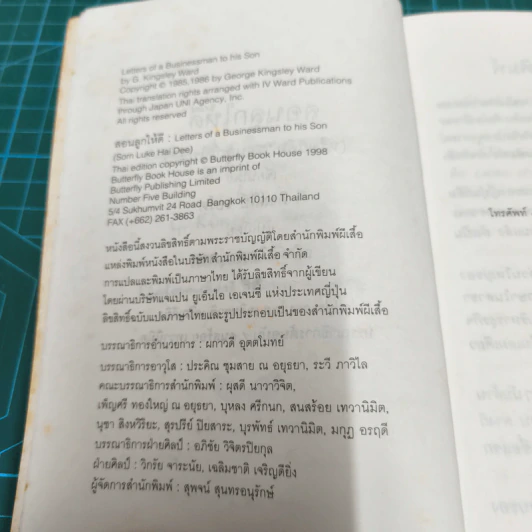 Letters of a Businessman to his Son
by G. Kingsley Ward
Copyright © 1985,1986 by George Kingsley Ward
Thai translation rights arranged with IV Ward Publications
through Japan UNI Agency, Inc.
All rights reserved
สอนลูกให้ดี : Letters of a Businessman to his Son
(Som Luke Hai Dee)
Thai edition copyright © Butterfly Book House 1998
Butterfly Book House is an imprint of
Butterfly Publishing Limited
Number Five Building
5/4 Sukhumvit 24 Road Bangkok 10110 Thailand
FAX (+662) 261-3863
หนังสือนี้สงวนลิขสิทธิ์ตามพระราชบัญญัติโดยสำนักพิมพ์ผีเสื้อ
แหล่งพิมพ์หนังสือในบริษัท สำนักพิมพ์ผีเสื้อ จำกัด
การแปลและพิมพ์เป็นภาษาไทย ได้รับลิขสิทธิ์จากผู้เขียน
โดยผ่านบริษัทแจแปน ยูเอ็นไอ เอเจนซี แห่งประเทศญี่ปุ่น
ลิขสิทธิ์ฉบับแปลภาษาไทยและรูปประกอบเป็นของสำนักพิมพ์ผีเสื้อ
บรรณาธิการอำนวยการ : ผกาวดี อุตตโมทย์
บรรณาธิการอาวุโส : ประคิณ ชุมสาย ณ อยุธยา, ระวี ภาวิไล
คณะบรรณาธิการสำนักพิมพ์ : ผุสดี นาวาวิจิต,
เพ็ญศรี ทองใหญ่ ณ อยุธยา, บุหลง ศรีกนก, สนสร้อย เทวานิมิต,
นุชา สิงหวิริยะ, สุรปรีย์ ปิยสาระ, บุรพัทธ์ เทวานิมิต, มกุฏ อรฤดี
บรรณาธิการฝ่ายศิลป์ : อภิชัย วิจิตรปิยกุล
ฝ่ายศิลป์ : วิกรัย จาระนัย, เฉลิมชาติ เจริญดียิ่ง
ผู้จัดการสำนักพิมพ์ : สุพจน์ สุนทรอนุรักษ์
โทรศัพท์